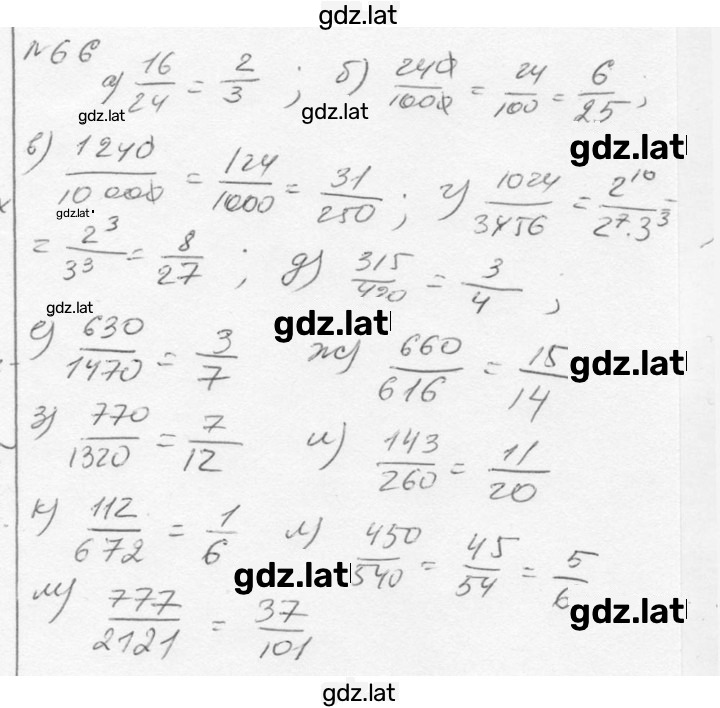 gdz.lat
№66
а) 16/24 = 2/3 ; б) 240/1000 = 24/100 = 6/25 ;
gdz.lat gdz.lat
gdz.lat
в) 1240/10000 = 124/1000 = 31/250 ; г) 1024/3456 = 2^10/2^7·3^3 =
gdz.lat
= 2^3/3^3 = 8/27 ; д) 315/420 = 3/4 ;
gdz.lat gdz.lat
е) 630/1470 = 3/7 ж) 660/616 = 15/14
gdz.lat
з) 770/1320 = 7/12 и) 143/260 = 11/20
к) 112/672 = 1/6 л) 450/540 = 45/54 = 5/6
gdz.lat gdz.lat
м) 777/2121 = 37/101
gdz.lat